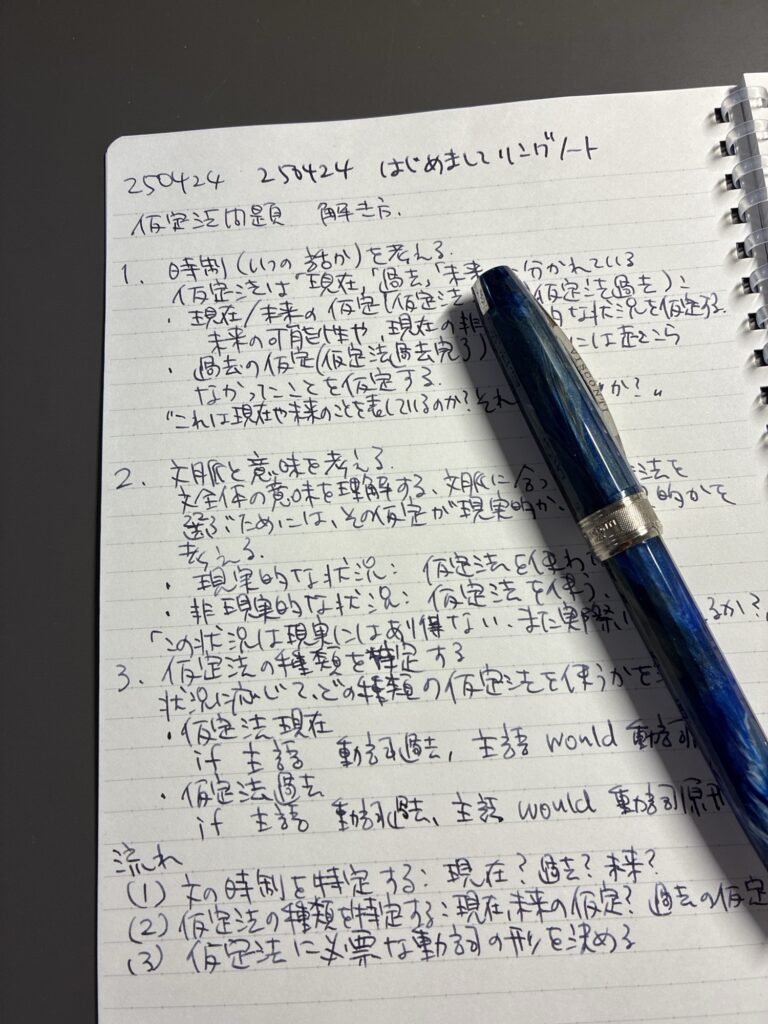 250424 250424 はじめまして リングノート
仮定法問題 解き方.
1. 時制(いつの話か)を考える.
仮定法は「現在,「過去,「未来 に分かれている
・現在/未来の仮定(仮定法 仮定法過去):
未来の可能性や, 現在の非 的な状況を仮定する.
・過去の仮定(仮定法過去完了) には起こら
なかったことを仮定する.
"これは現在や未来のことを表しているのか? それ か? "
2. 文脈と意味を考える.
文全体の意味を理解する、文脈に合っ 法を
選ぶためには、その仮定が現実的か、 的かを
考える.
・現実的な状況: 仮定法を使わ
・非現実的な状況: 仮定法を使う.
「この状況は現実にはあり得ない、また実際 るか?
3. 仮定法の種類を特定する
状況に応じて、どの種類の仮定法を使うかを
・仮定法現在
if 主語 動詞過去, 主語 would 動詞
・仮定法過去
if 主語 動詞過去、主語 would 動詞原形
流れ
(1) 文の時制を特定する: 現在? 過去? 未来?
(2) 仮定法の種類を特定する: 現在、未来の仮定? 過去の仮定
(3) 仮定法に必要な動詞の形を決める
VISCONTI